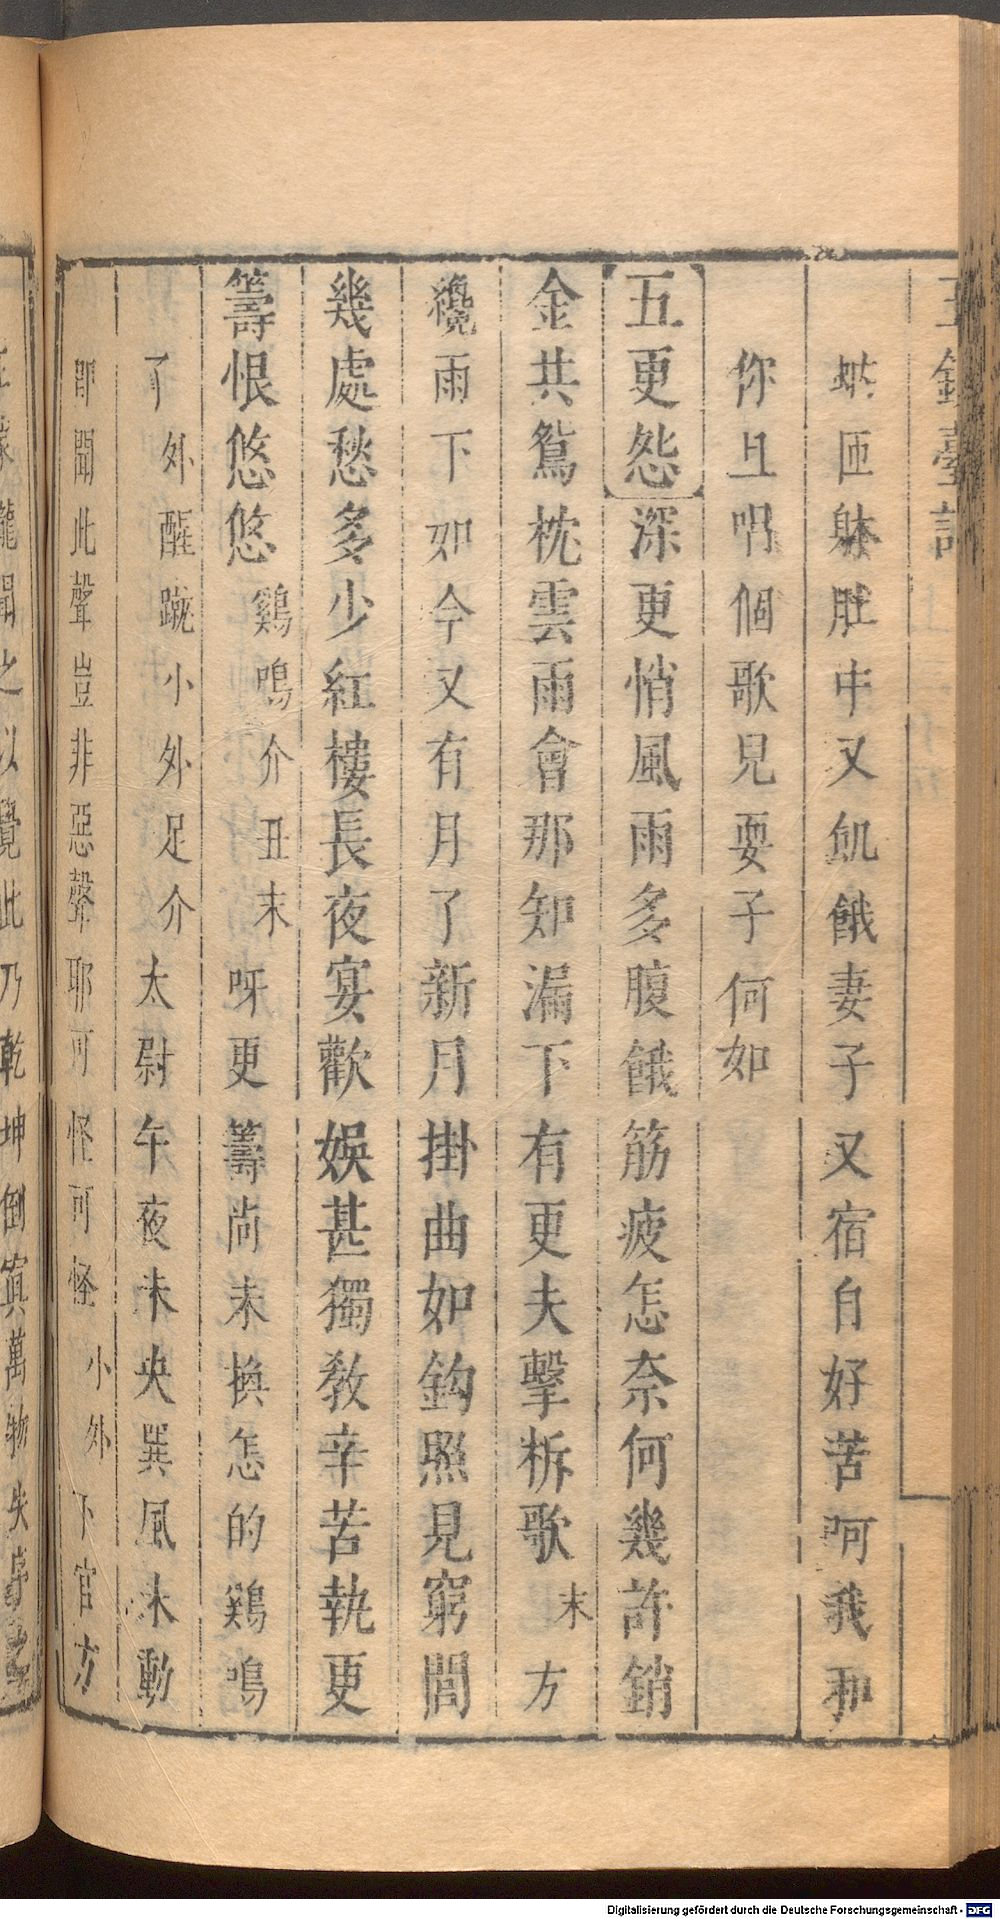 玉鏡臺記
匝躰肚中又飢餓妻子又宿自好苦呵我和
你且唱個歌見耍子何如
五更怨深更悄風雨多腹餓筋疲怎奈何幾許銷
金共鴛枕雲雨會那知漏下有更夫擊柝歌末方
纔雨下如今又有月了新月掛曲如鈎照見窮閻
幾處愁多少紅樓長夜宴歡娛甚獨教辛苦執更
籌恨悠悠鷄鳴介丑末呀更籌尚未換怎的鷄鳴
了外醒蹴小外足介太尉午夜未央巽風未動
即聞此聲豈非惡聲耶可怪可怪小外下官方
聞之以覺此乃乾坤倒寘萬物失
Digitalisierung gefördert durch die Deutsche Forschungsgemeinschaft - DFG